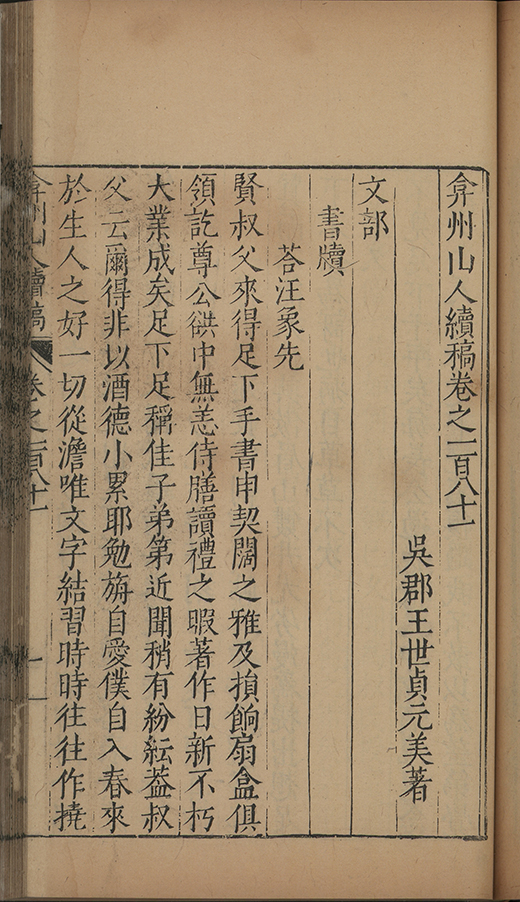 弇州山人續稿卷之一百八十一
吳郡王世貞元美著
文部
書牘
荅汪象先
賢叔父來得足下手書申契闊之雅及損餉扇盒俱
領訖尊公𣣔中無恙侍膳讀禮之暇著作日新不朽
大業成矣足下足稱佳子弟第近聞稍有紛紜葢叔
父云爾得非以酒德小累耶勉旃自愛僕自入春來
於生人之好一切從澹唯文字結習時時往往作撓
弇州山人續稿 卷之一百八十一 一